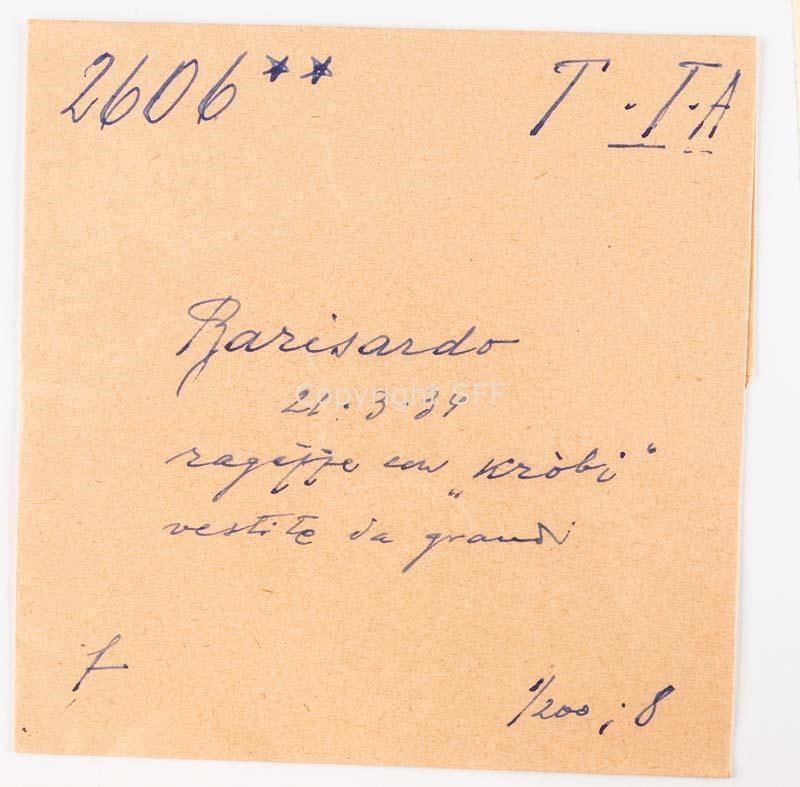 2606** T.I.A
Barisardo
21.3.34
Copyright SFF
ragazze con "kròbi"
vestite da grandi
f
1/200 ; 8